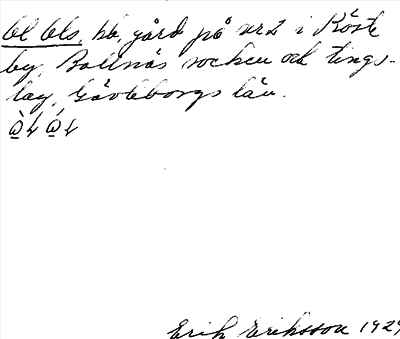 Ol Ols, hb, gård på nr 2 i Röste
by Bollnäs socken och tings-
lag, Gävleborgs län.
Erik Eriksson 1929